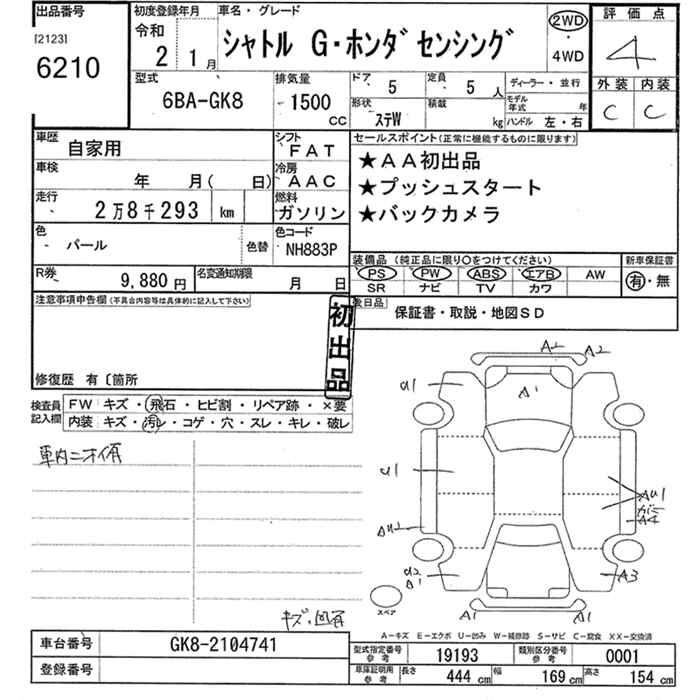 出品番号
[2123]
6210
初度登録年月
令和
2 1月
車名・グレード
シャトル G・ホンダセンシング
2WD
・
4WD
評価点
4
外装 内装
C C
型式
6BA-GK8
排気量
1500
CC
ドア
5
定員
5 人
形状
ステW
積載
kg
ディーラー・並行
モデル年式 年
ハンドル 左・右
車歴
自家用
シフト
FAT
車検
年 月( 日)
冷房
AAC
走行
2万8千293 km
燃料
ガソリン
色
パール
色替
色コード
NH883P
R券
9,880円
名変通知期限
月 日
セールスポイント(正常に機能するものに限ります)
★AA初出品
★プッシュスタート
★バックカメラ
装備品(純正品に限り○をつけてください)
PS PW ABS エアB AW
SR ナビ TV カワ
新車保証書
有・無
後日品
保証書・取説・地図SD
注意事項申告欄(不具合内容等は具体的に記入して下さい)
初出品
修復歴 有〔箇所
検査員
記入欄
FW キズ・飛石・ヒビ割・リペア跡・×要
内装 キズ・汚レ・コゲ・穴・スレ・キレ・破レ
車内ニオイ有
キズ・凹有
A2 A2
A1
U1
U1
AU1
A4
AU2
U2
A1
A3
A1 A1
スペア
A-キズ E-エクボ U-凹み W-補修跡 S-サビ C-腐食 XX-交換済
車台番号
GK8-2104741
登録番号
型式指定番号
参考
19193
類別区分番号
参考
0001
車庫証明用
参考
長さ
444 cm
幅
169 cm
高さ
154 cm